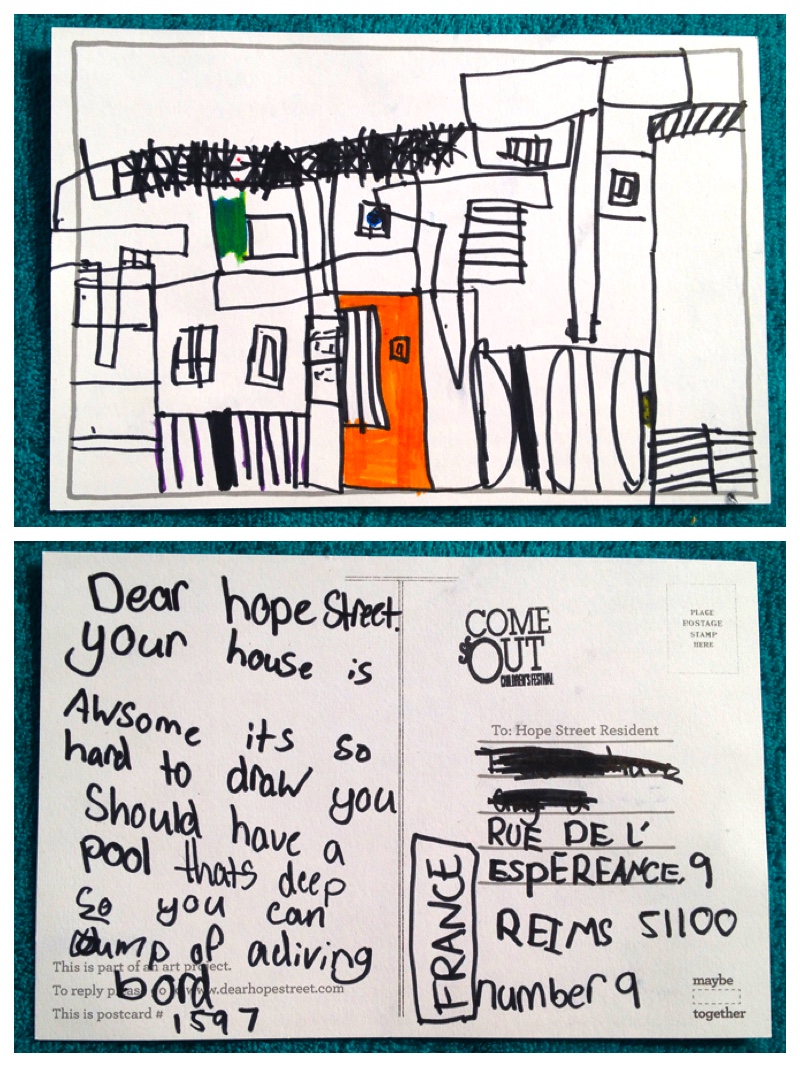 9
Dear hope Street.
your house is
Awsome its so
hard to draw you
Should have a
pool thats deep
So you can
Jump of a diving
bord
This is part of an art project.
To reply please go to www.dearhopestreet.com
This is postcard #
1597
COME
OUT
CHILDREN'S FESTIVAL
PLACE
POSTAGE
STAMP
HERE
To: Hope Street Resident
RUE DE L'
ESpEREANCE, 9
REIMS 51100
number 9
FRANCE
maybe
together